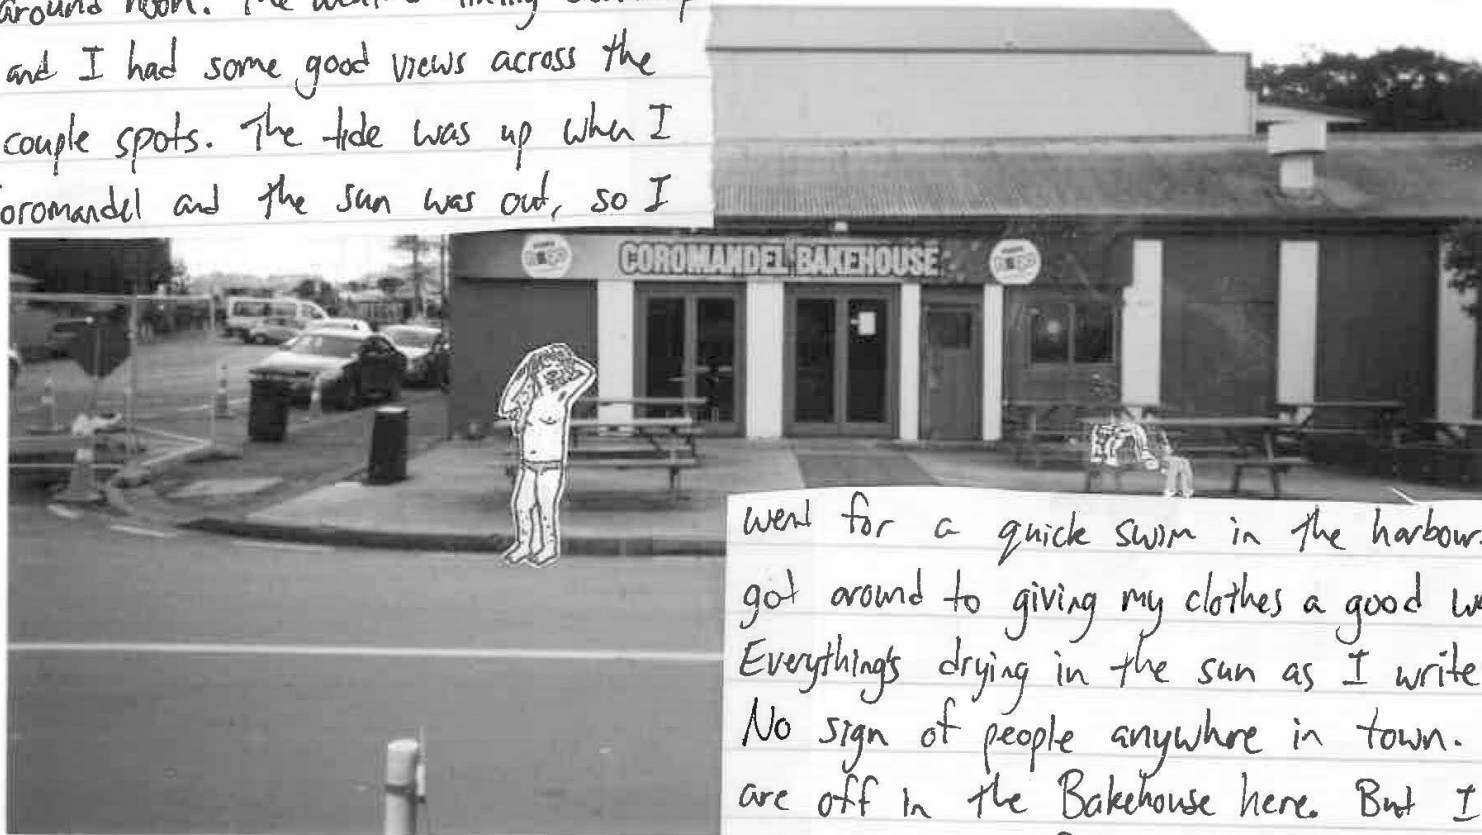 around noon. The
and I had some good views across the
couple spots. The tide was up when I
oromandel and the sun was out, so I
COROMANDEL BAKEHOUSE
went for a quick swim in the harbour.
got around to giving my clothes a good
Everything's drying in the sun as I write
No sign of people anywhre in town.
are off in the Bakehouse here. But I